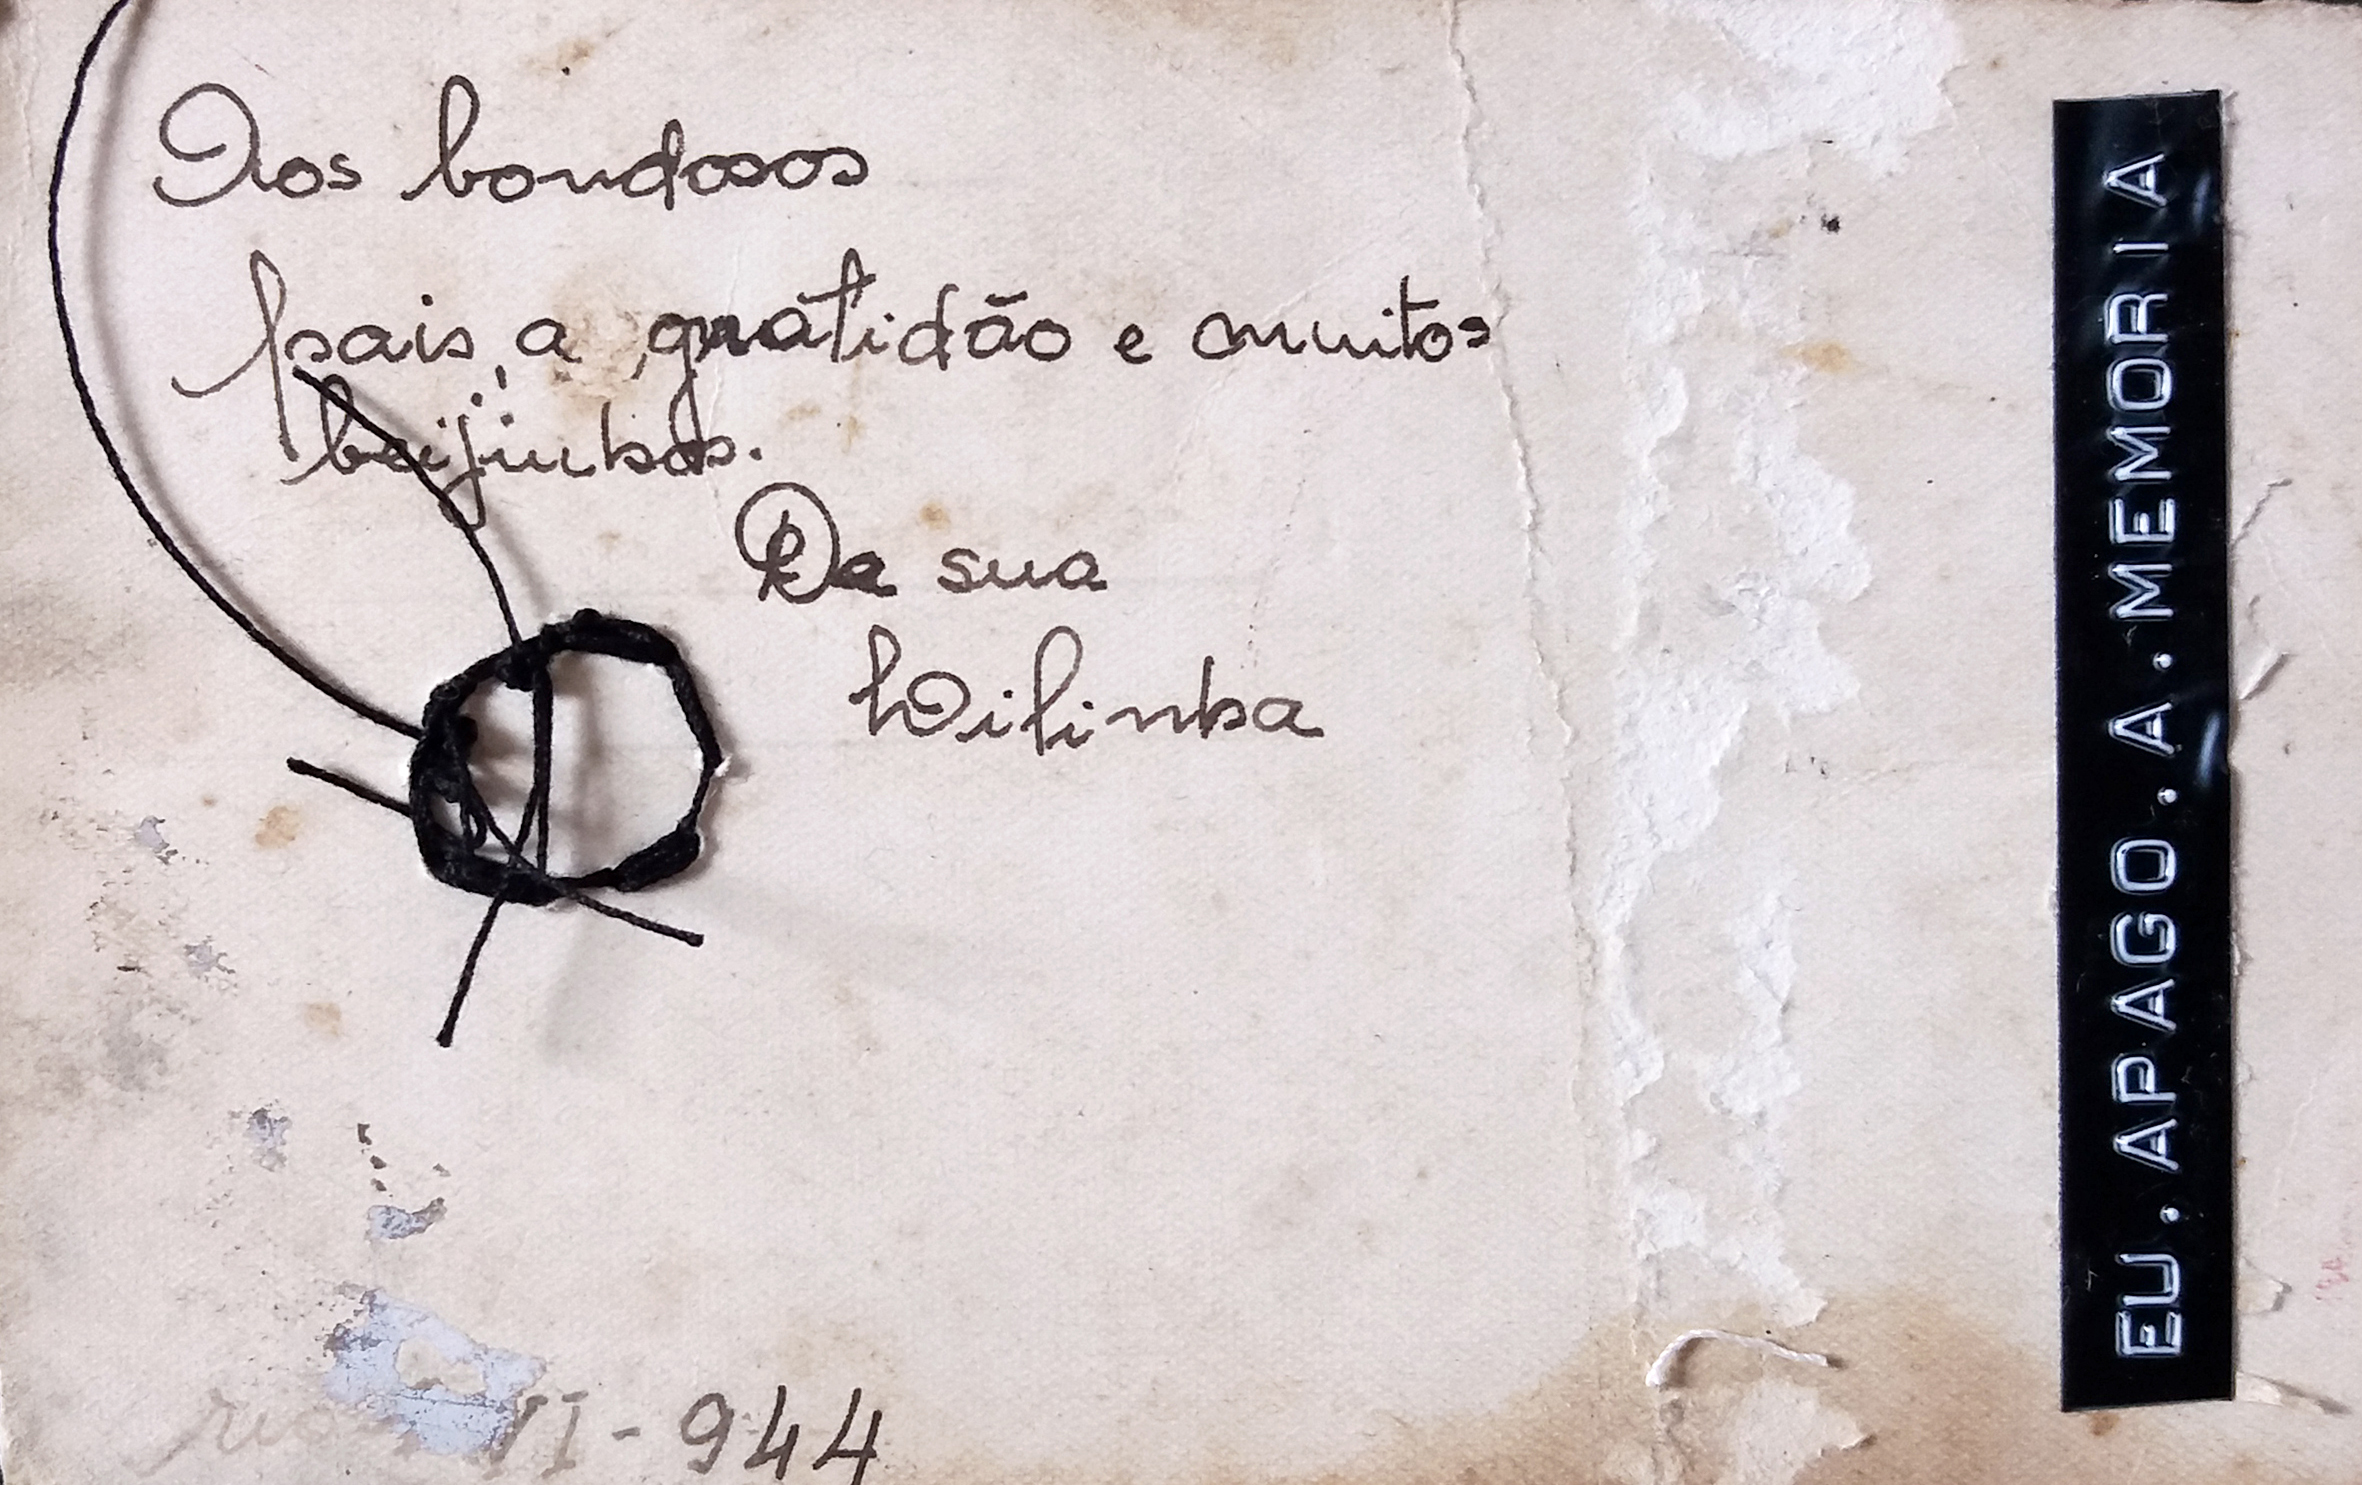 Aos bondosos
pais, a gratidão e muitos
beijinhos.
Da sua
Wilinha
rio VI-944
EU.APAGO.A.MEMORIA